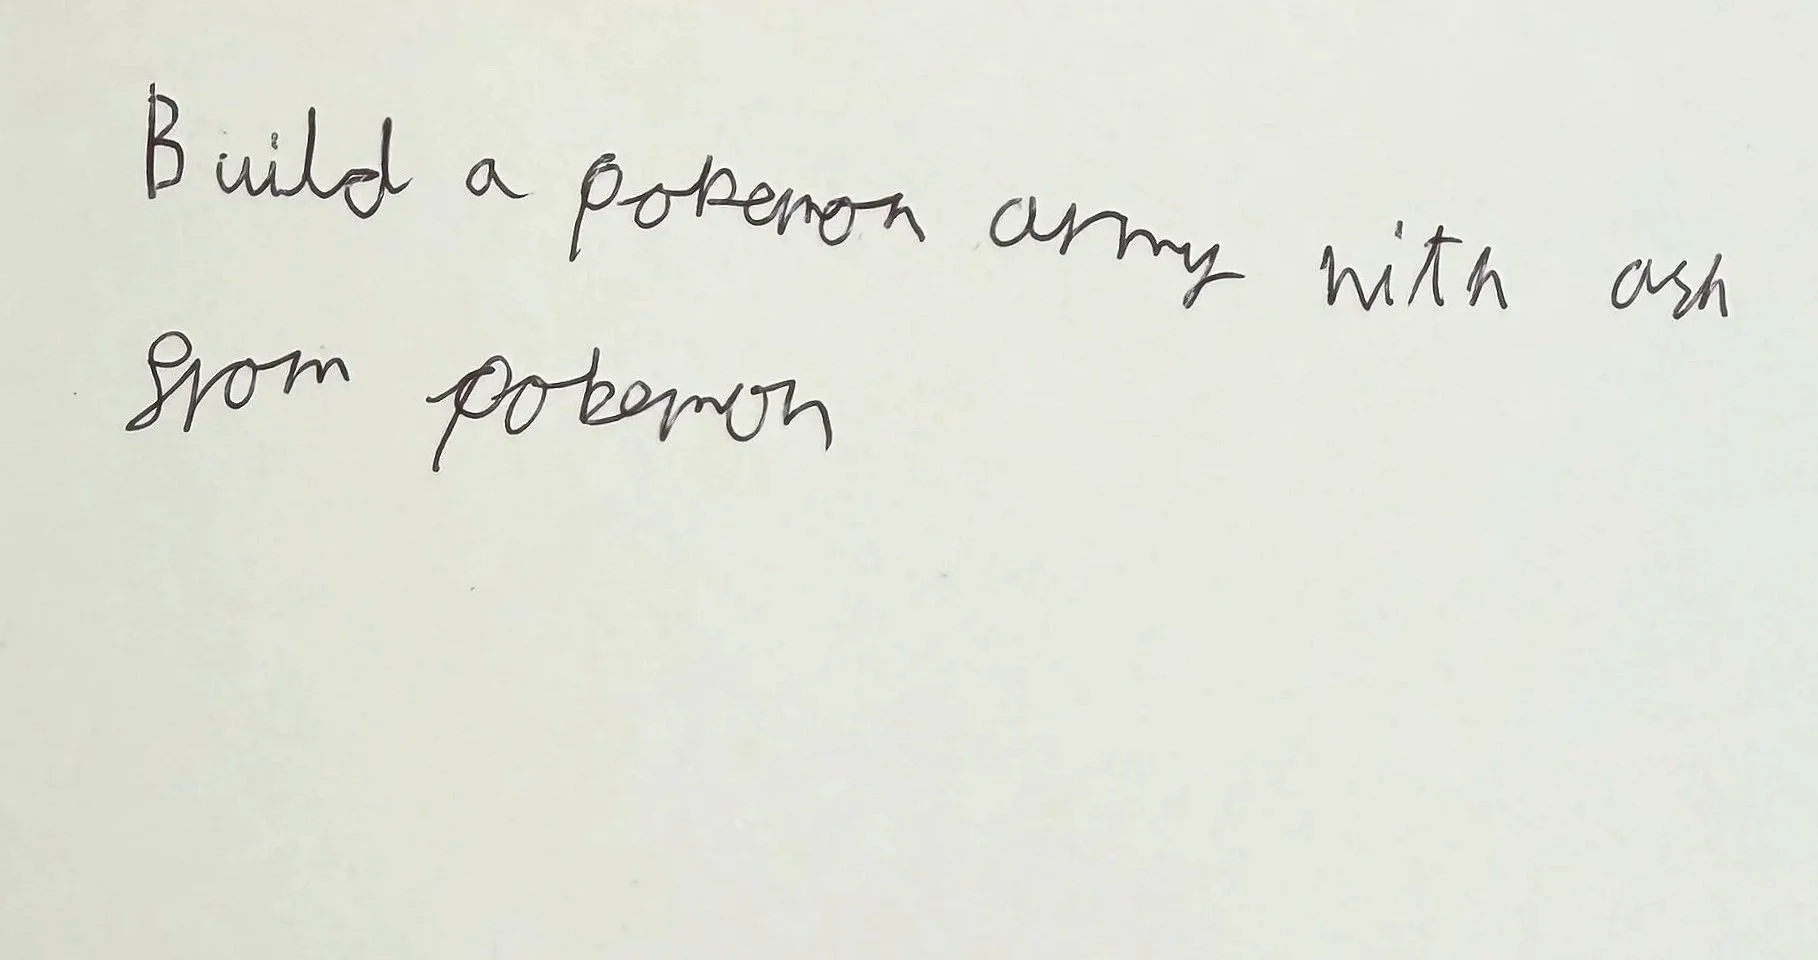 Build a pokemon army with ash
from pokemon